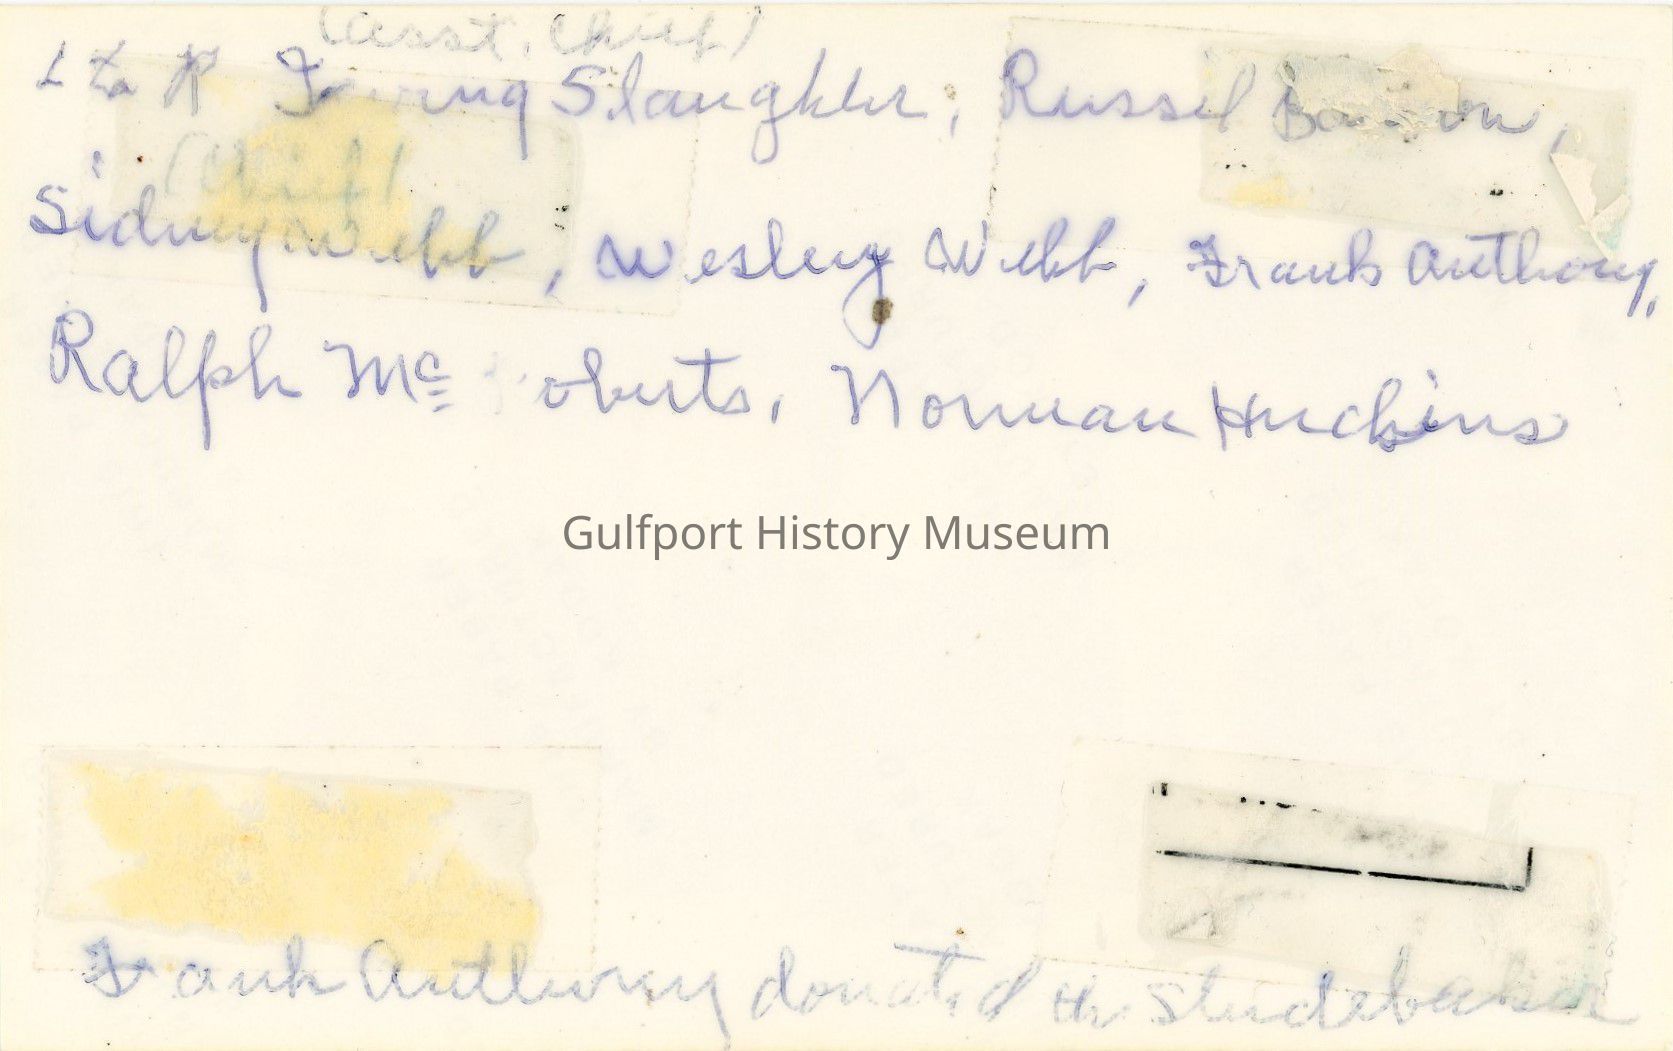 (asst. chief)
L to R Irving Slaughter, Russel
(chief)
Sidney Webb, Wesley Webb, Frank Anthony,
Ralph Mc oberts, Norman Huckins
Gulfport History Museum
Frank Anthony donated the Studebaker